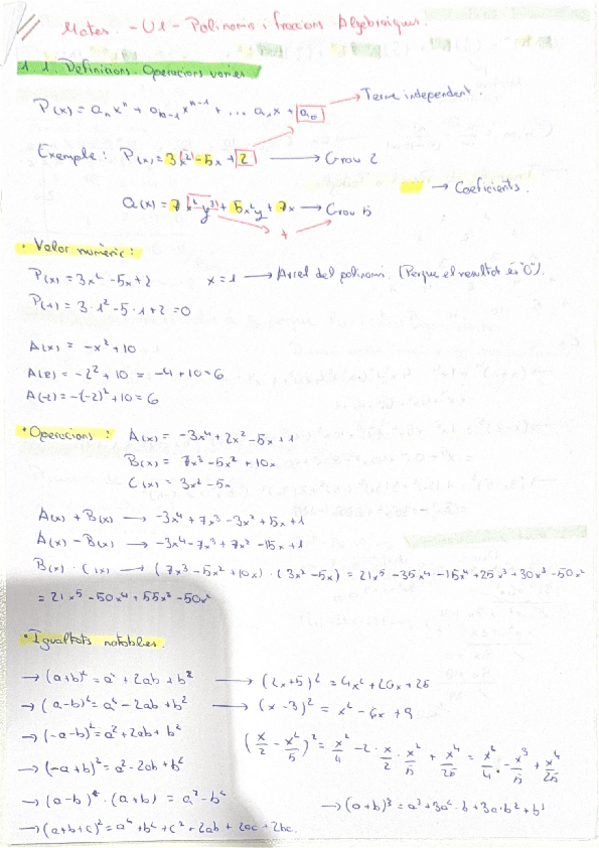 Mates. - U1 - Polinomis i fraccions Algebraiques.
1.1. Definicions. Operacions varies
P(x) = aₙxⁿ + aₙ₋₁xⁿ⁻¹ + ... a₁x + a₀ → Terme independent.
Exemple: P(x) = 3x² - 5x + 2 → Grau 2
→ Coeficients.
Q(x) = 7x²y³ + 5x²y + 7x → Grau 5
+
· Valor numèric:
P(x) = 3x² - 5x + 2 x = 1 → Arrel del polinomi. (Perque el resultat és "0").
P(1) = 3·1² - 5·1 + 2 = 0
A(x) = -x² + 10
A(2) = -2² + 10 = -4 + 10 = 6
A(-2) = -(-2)² + 10 = 6
· Operacions: A(x) = -3x⁴ + 2x² - 5x + 1
B(x) = 7x³ - 5x² + 10x
C(x) = 3x² - 5x
A(x) + B(x) → -3x⁴ + 7x³ - 3x² + 5x + 1
A(x) - B(x) → -3x⁴ - 7x³ + 7x² - 15x + 1
B(x) · C(x) → (7x³ - 5x² + 10x) · (3x² - 5x) = 21x⁵ - 35x⁴ - 15x⁴ + 25x³ + 30x³ - 50x²
= 21x⁵ - 50x⁴ + 55x³ - 50x²
· Igualtats notables.
→ (a+b)² = a² + 2ab + b² → (2x+5)² = 4x² + 20x + 25
→ (a-b)² = a² - 2ab + b² → (x-3)² = x² - 6x + 9
→ (-a-b)² = a² + 2ab + b²
(x/2 - x²/5)² = x²/4 - 2 · x/2 · x²/5 + x⁴/25 = x²/4 - x³/5 + x⁴/25
→ (-a+b)² = a² - 2ab + b²
→ (a-b) · (a+b) = a² - b² → (a+b)³ = a³ + 3a²·b + 3a·b² + b³
→ (a+b+c)² = a² + b² + c² + 2ab + 2ac + 2bc.